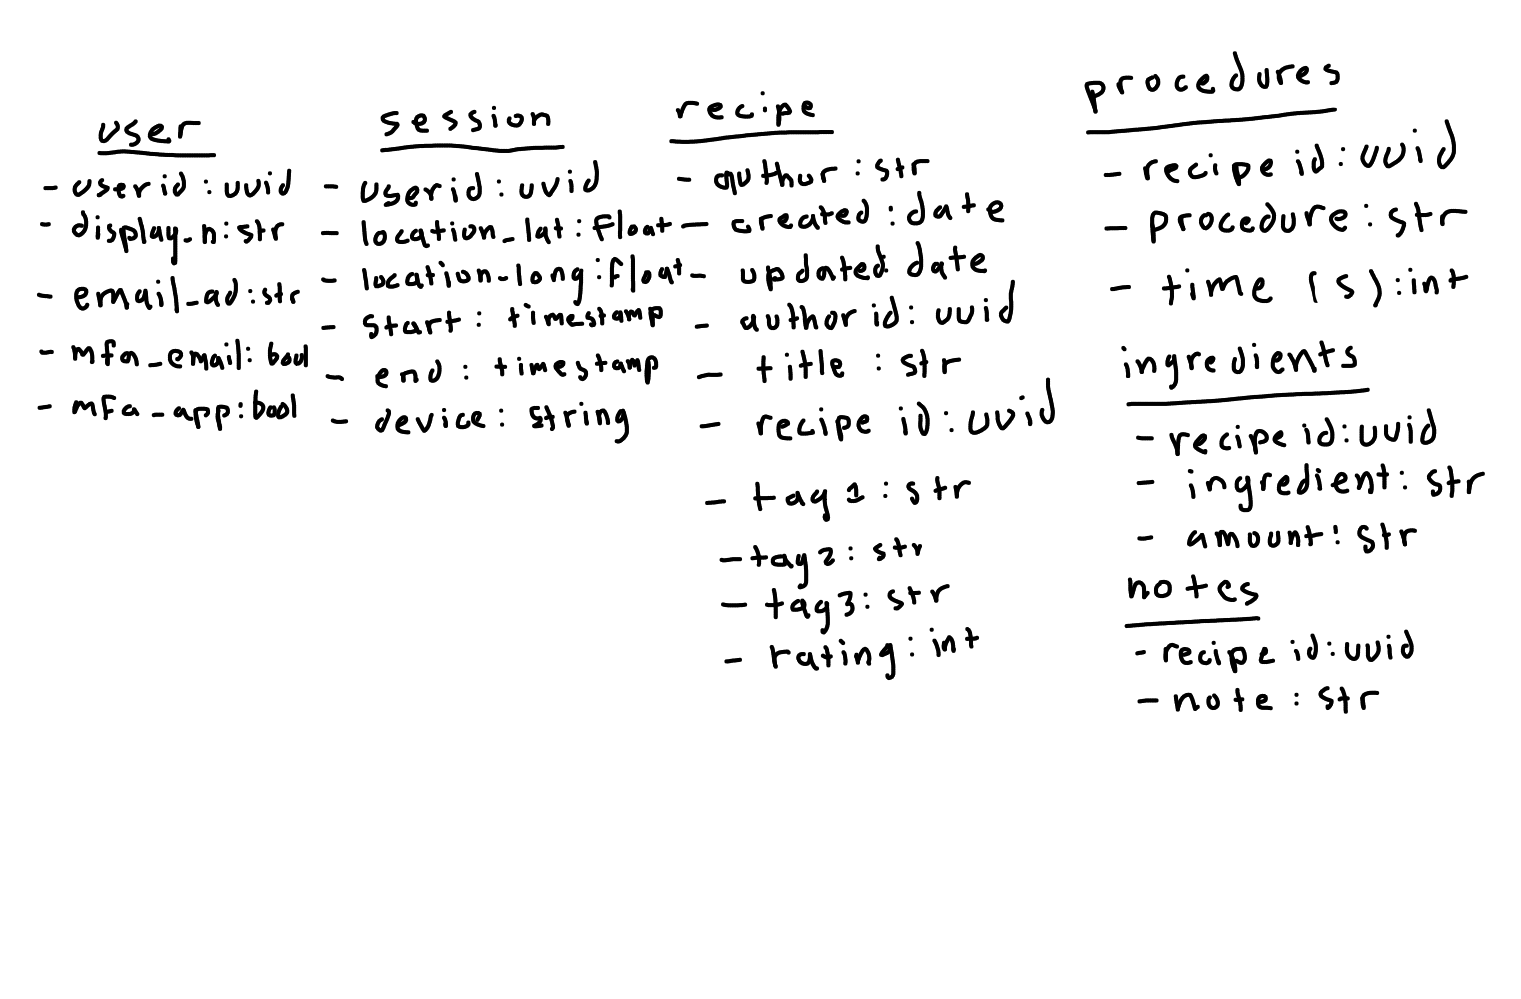 user
- userid : uuid
- display_n: str
- email_ad: str
- mfa_email: bool
- mfa_app: bool
session
- userid : uuid
- location_lat: float
- location-long: float
- start : timestamp
- end : timestamp
- device : string
recipe
- author : str
- created : date
- updated: date
- author id: uuid
- title : str
- recipe id : uuid
- tag 1 : str
- tag 2 : str
- tag 3 : str
- rating : int
procedures
- recipe id : uuid
- procedure : str
- time (s) : int
ingredients
- recipe id: uuid
- ingredient: str
- amount: str
notes
- recipe id: uuid
- note : str